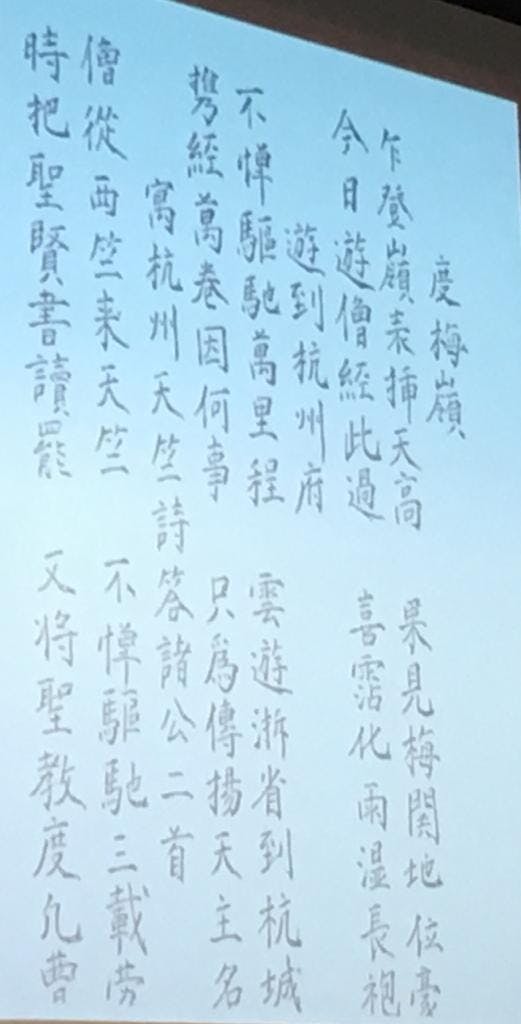 度梅嶺
乍登嶺表挿天高 果見梅関地位豪
今日遊僧經此過 喜霑化雨湿長袍
遊到杭州府
不憚驅馳萬里程 雲遊浙省到杭城
携經萬卷因何事 只爲傳揚天主名
寓杭州天竺詩答諸公二首
僧從西竺来天竺 不憚驅馳三載劳
時把聖賢書讀罷 又将聖教度凡曹